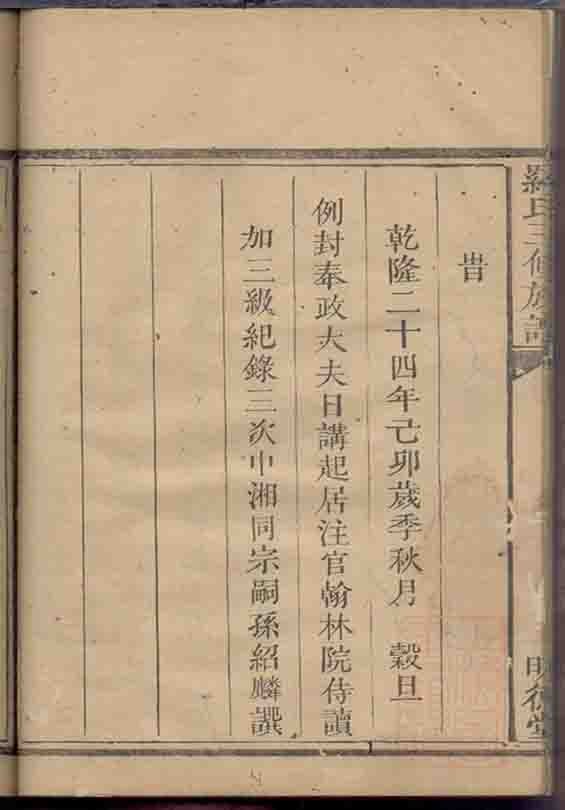 羅氏三修族譜
明德堂
昔
乾隆二十四年己卯歲季秋月　穀旦
例封奉政大夫日講起居注官翰林院侍讀
加三級紀錄三次中湘同宗嗣孫紹麟譔